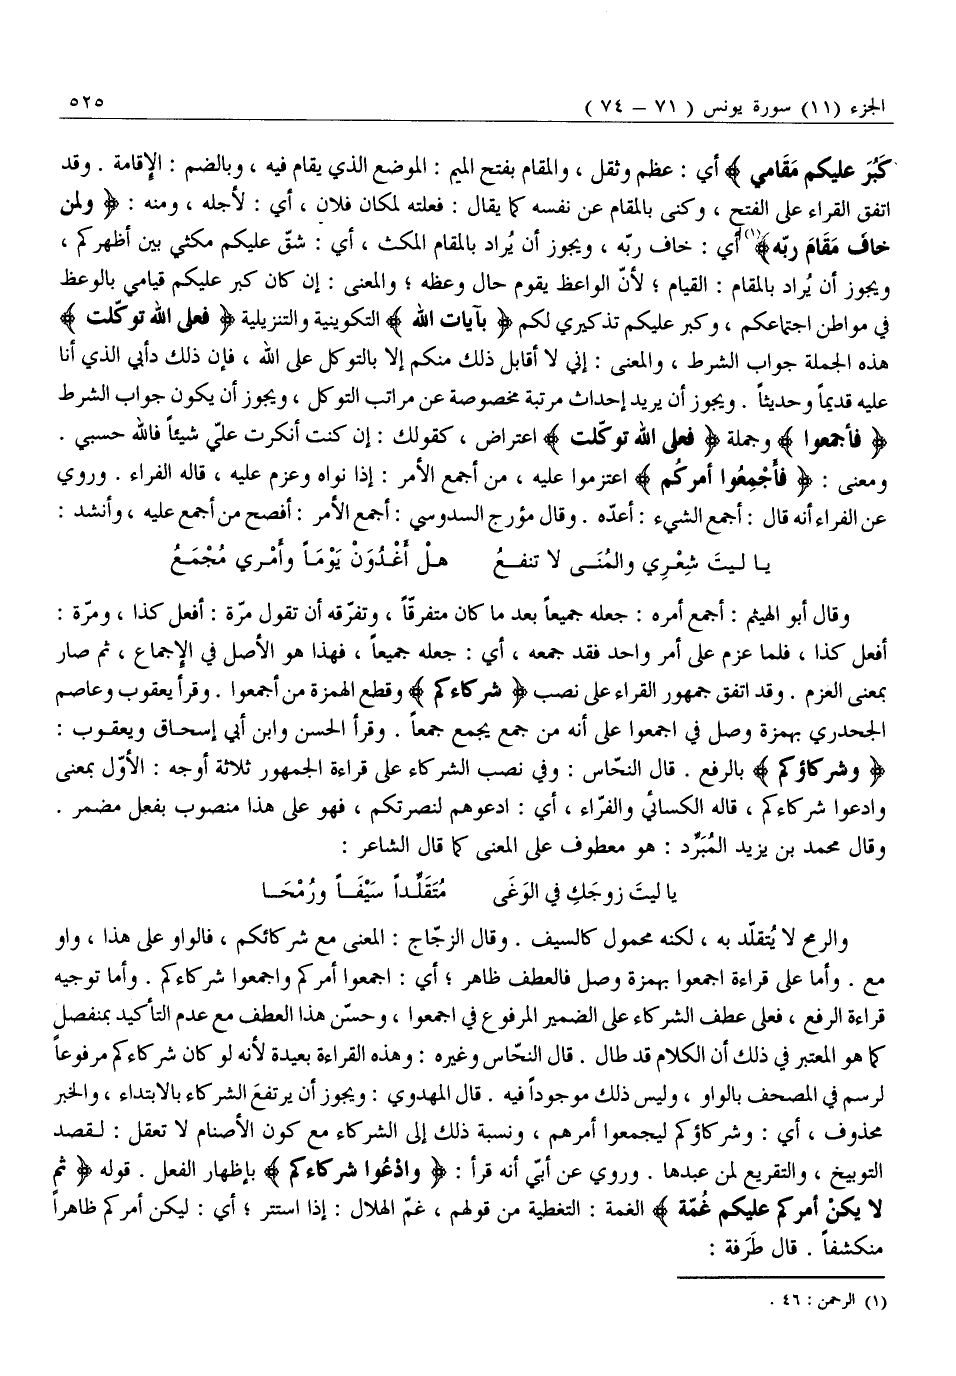 الجزء (١١) سورة يونس ( ٧١ – ٧٤ )
٥٢٥
كَبُرَ عليكم مَقَامي ﴾ أي : عظم وثقل ، والمقام بفتح الميم : الموضع الذي يقام فيه ، وبالضم : الإقامة . وقد
اتفق القراء على الفتح ، وكنى بالمقام عن نفسه كما يقال : فعلته لمكان فلان ، أي : لأجله ، ومنه : ﴿ ولمن
خافَ مَقَامَ ربّه ﴾(١) أي : خاف ربّه ، ويجوز أن يُراد بالمقام المكث ، أي : شقّ عليكم مكثي بين أظهركم ،
ويجوز أن يُراد بالمقام : القيام ؛ لأنّ الواعظ يقوم حال وعظه ؛ والمعنى : إن كان كبر عليكم قيامي بالوعظ
في مواطن اجتماعكم ، وكبر عليكم تذكيري لكم ﴿ بآيات الله ﴾ التكوينية والتنزيلية ﴿ فعلى الله توكّلت ﴾
هذه الجملة جواب الشرط ، والمعنى : إني لا أقابل ذلك منكم إلا بالتوكل على الله ، فإن ذلك دأبي الذي أنا
عليه قديماً وحديثاً . ويجوز أن يريد إحداث مرتبة مخصوصة عن مراتب التوكل ، ويجوز أن يكون جواب الشرط
﴿ فأجمعوا ﴾ وجملة ﴿ فعلى الله توكّلت ﴾ اعتراض ، كقولك : إن كنت أنكرت عليّ شيئاً فالله حسبي .
ومعنى : ﴿ فأَجْمِعُوا أمركُم ﴾ اعتزموا عليه ، من أجمع الأمر : إذا نواه وعزم عليه ، قاله الفراء . وروي
عن الفراء أنه قال : أجمع الشيء : أعدّه . وقال مؤرج السدوسي : أجمع الأمر : أفصح من أجمع عليه ، وأنشد :
يا ليتَ شِعْرِي والمُنَى لا تنفعُ هلْ أَغْدُوَنْ يَوْمَاً وأَمْري مُجْمَعُ
وقال أبو الهيثم : أجمع أمره : جعله جميعاً بعد ما كان متفرقاً ، وتفرّقه أن تقول مرّة : أفعل كذا ، ومرّة :
أفعل كذا ، فلما عزم على أمر واحد فقد جمعه ، أي : جعله جميعاً ، فهذا هو الأصل في الإجماع ، ثم صار
بمعنى العزم . وقد اتفق جمهور القراء على نصب ﴿ شركاءكم ﴾ وقطع الهمزة من أجمعوا . وقرأ يعقوب وعاصم
الجحدري بهمزة وصل في اجمعوا على أنه من جمع يجمع جمعاً . وقرأ الحسن وابن أبي إسحاق ويعقوب :
﴿ وشركاؤكم ﴾ بالرفع . قال النحّاس : وفي نصب الشركاء على قراءة الجمهور ثلاثة أوجه : الأوّل بمعنى
وادعوا شركاءكم ، قاله الكسائي والفرّاء ، أي : ادعوهم لنصرتكم ، فهو على هذا منصوب بفعل مضمر .
وقال محمد بن يزيد المُبَرِّد : هو معطوف على المعنى كما قال الشاعر :
يا ليتَ زوجكِ في الوَغَى مُتَقَلِّداً سَيْفَاً ورُمْحَا
والرمح لا يُتقلّد به ، لكنه محمول كالسيف . وقال الزجّاج : المعنى مع شركائكم ، فالواو على هذا ، واو
مع . وأما على قراءة اجمعوا بهمزة وصل فالعطف ظاهر ؛ أي : اجمعوا أمركم واجمعوا شركاءكم . وأما توجيه
قراءة الرفع ، فعلى عطف الشركاء على الضمير المرفوع في اجمعوا ، وحسّن هذا العطف مع عدم التأكيد بمنفصل
كما هو المعتبر في ذلك أن الكلام قد طال . قال النحّاس وغيره : وهذه القراءة بعيدة لأنه لو كان شركاءكم مرفوعاً
لرسم في المصحف بالواو ، وليس ذلك موجوداً فيه . قال المهدوي : ويجوز أن يرتفعَ الشركاء بالابتداء ، والخبر
محذوف ، أي : وشركاؤكم ليجمعوا أمرهم ، ونسبة ذلك إلى الشركاء مع كون الأصنام لا تعقل : لقصد
التوبيخ ، والتقريع لمن عبدها . وروي عن أبيّ أنه قرأ : ﴿ وادْعُوا شركاءكم ﴾ بإظهار الفعل . قوله ﴿ ثم
لا يكنْ أمركم عليكم غُمّة ﴾ الغمة : التغطية من قولهم ، غمّ الهلال : إذا استتر ؛ أي : ليكن أمركم ظاهراً
منكشفاً . قال طَرَفة :
(١) الرحمن : ٤٦ .